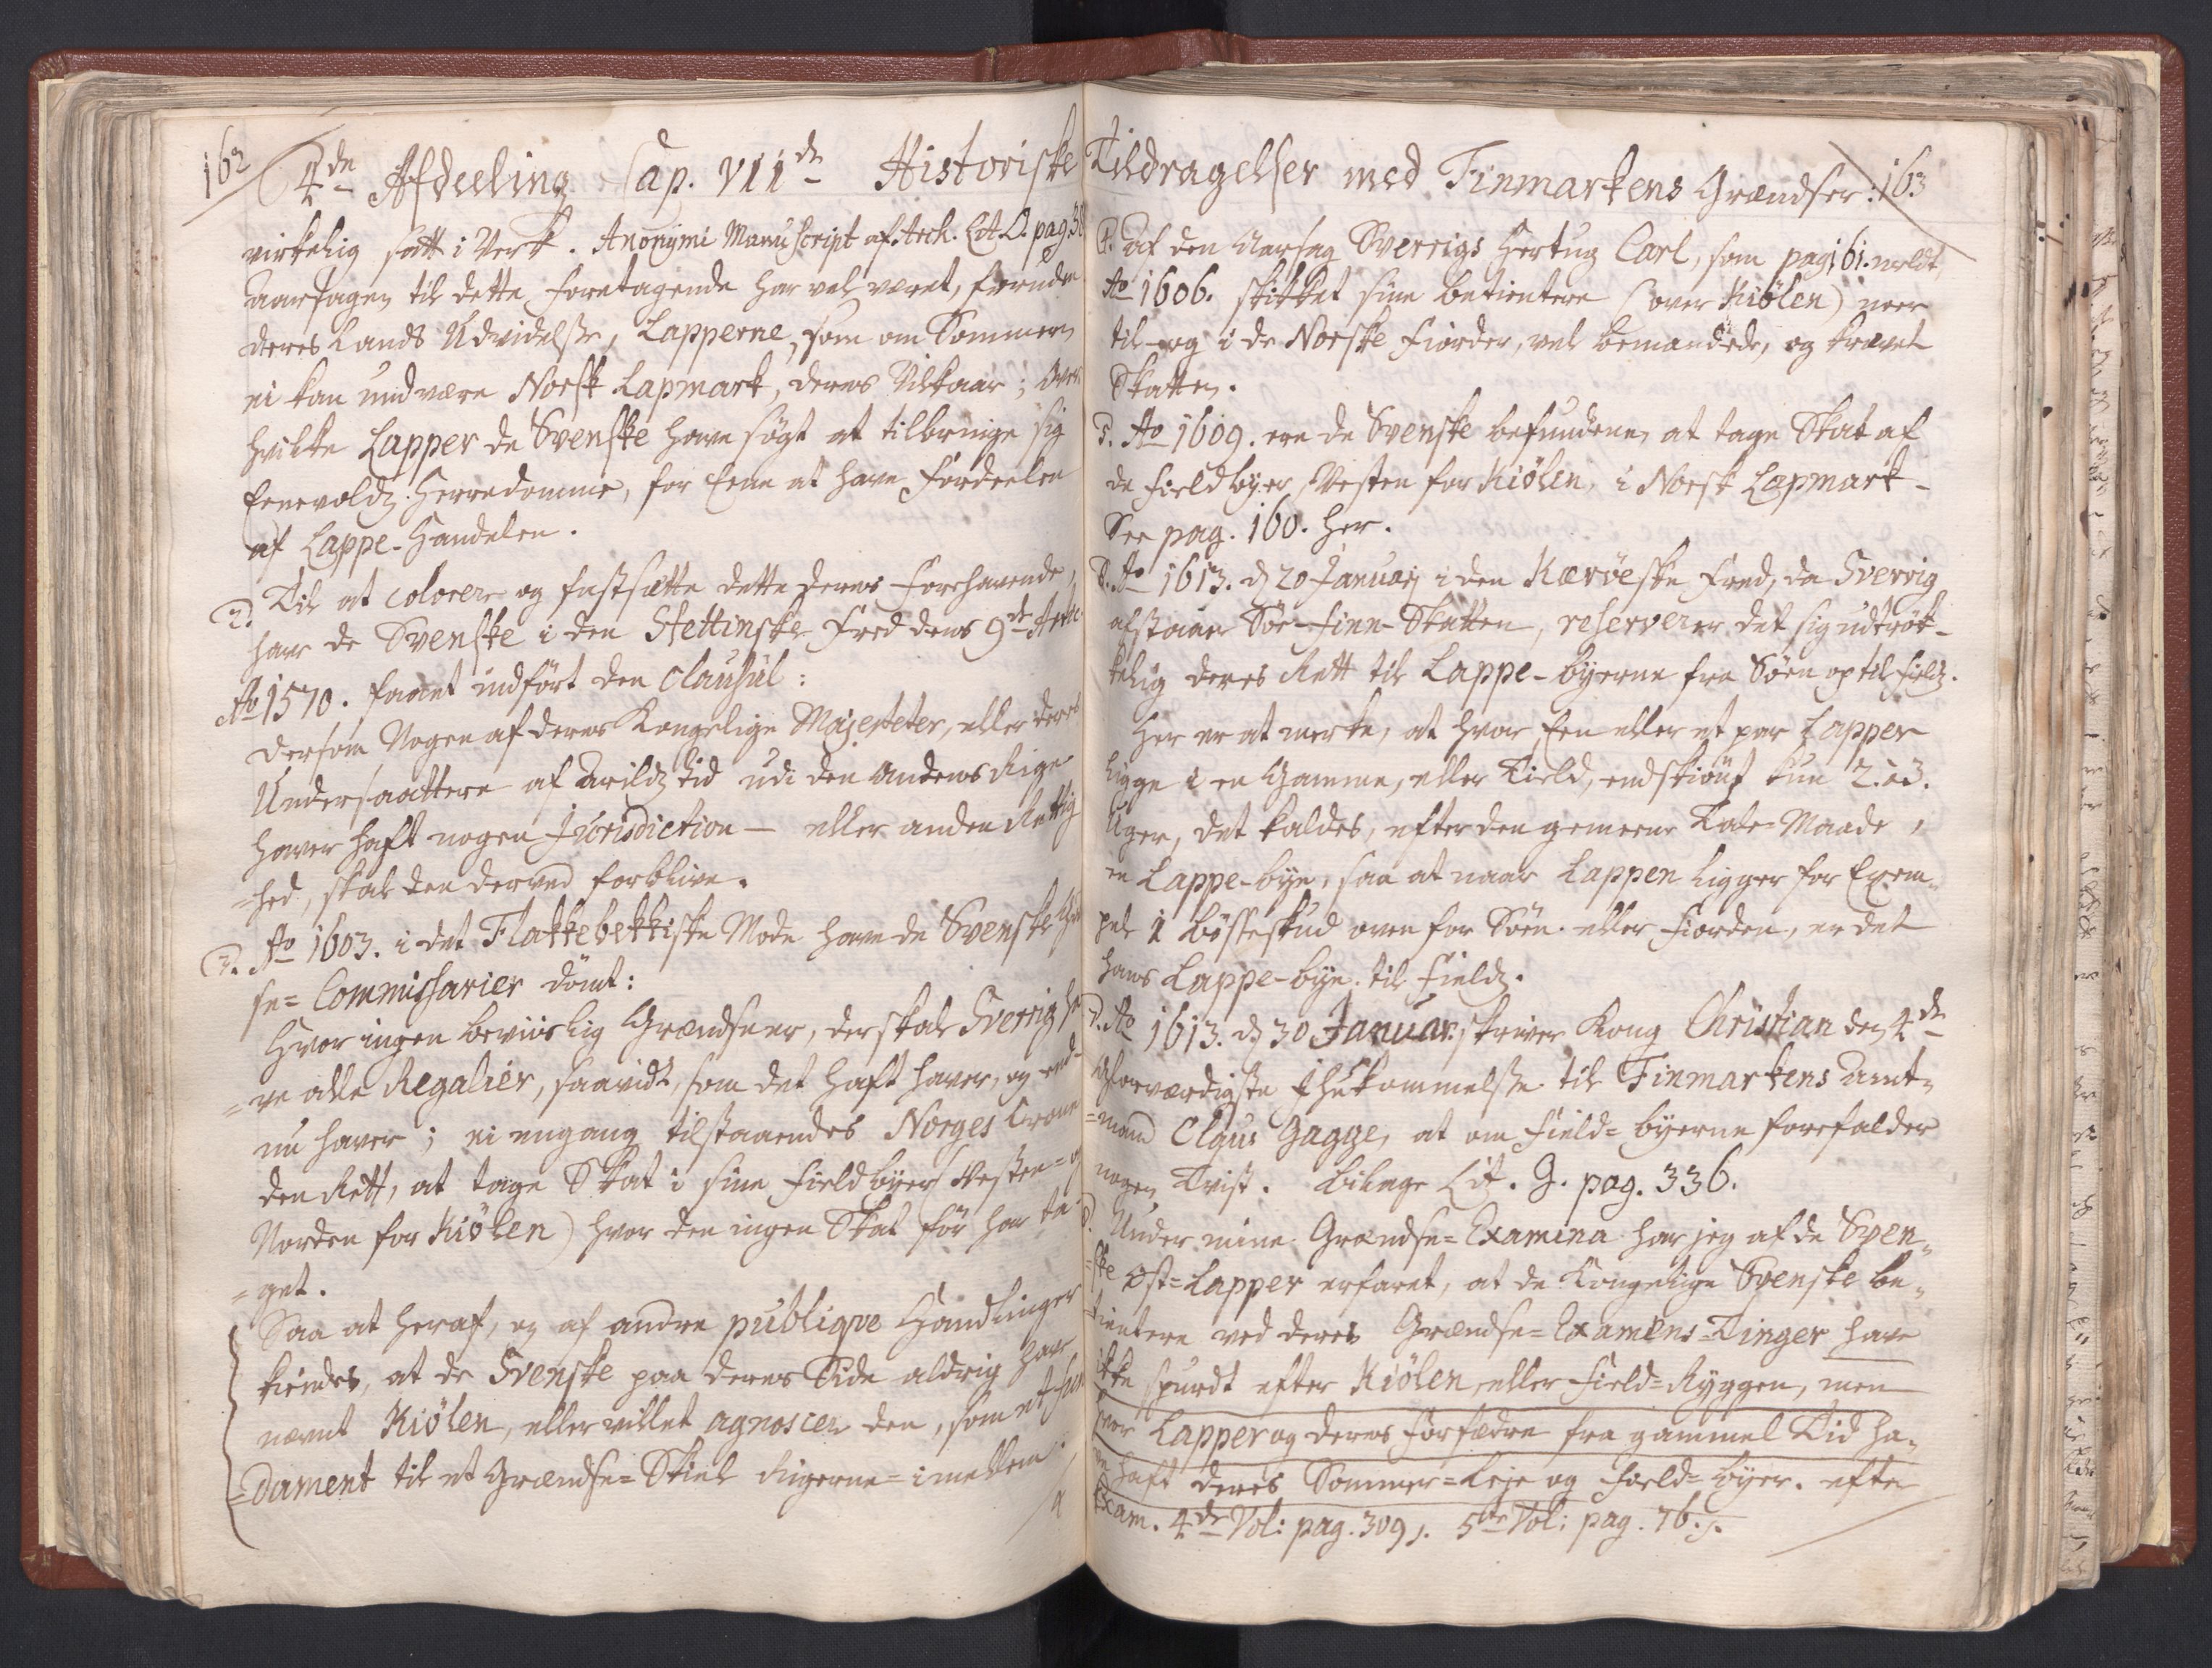 162
4de Afdeeling Cap. VIIde Historiske
virkelig satt i Verk. Anonymi Manuscript af Arch. Lit. D. pag. 38
Aarsagen til dette foretagende har vel været, foruden
deres Lands Udvidelse, Lapperne, som om Sommeren
ei kan undvære Norsk Lapmark, deres Vilkaar; over
hvilke Lapper de Svenske have søgt at tilbringe sig
Eenevoldz Herredomme, for Eene at have Fordeelen
af Lappe-Handelen.
2. Til at colorere og fastsætte dette deres forehavende,
have de Svenske i den Stettinske Fred dens 9de Artic.
Ao 1570. faaet indført den Clausul:
Dersom Nogen af deres Kongelige Majesteter, eller deres
Undersaattere af Arildz tid udi den Andens Rige
haver haft nogen Jurisdiction - eller anden Rettig
=hed, skal den derved forblive.
3. Ao 1603. i det Flakkebekkiske Møde have de Svenske
se= Commissarier dømt:
Hvor ingen beviislig Grændse er, der skal Sverrig
=ve alle Regalier, saavidt, som det haft haver, og end=
nu haver; ei engang tilstaaendes Norges Krone
den Rett, at tage Skat i sine Fieldbyer (Vesten= og
Norden for Kiølen) hvor den ingen Skat før har ta
=get.
Saa at heraf, og af andre publiqve Handlinger
kiendes, at de Svenske paa deres Side aldrig have
nævnt Kiølen, eller villet agnoscere den, som et Fun
=dament til et Grændse=Skiel Rigerne=imellem.
4
Tildragelser med Finmarkens Grændser: 163
4. Af den Aarsag Sverrigs Hertug Carl, som pag. 161. meldt,
Ao 1606. skikket sine betientere (over Kiølen) neer
til og i de Norske Fiorder, vel bemandede, og krævet
Skatten.
5. Ao 1609. ere de Svenske befundene, at tage Skat af
de Fieldbyer, Vesten for Kiølen, i Norsk Lapmark -
See pag. 160. her.
6. Ao 1613. d. 20 Januarij i den Kærøeske Fred, da Sverrig
afstaaer Søe-Finne-Skatten, reserverer det sig udtrøk-
kelig deres Rett til Lappe-byerne fra Søen op til Fields.
Her er at merke, at hvor Een eller et par Lapper
ligge i en Gamme, eller Tield, endskiønt kun 2. a 3.
Uger, det kaldes, efter den gemeene Tale=Maade,
en Lappe-bye, saa at naar Lappen ligger for Exem-
pel 1 bøsseskud oven for Søen. eller Fiorden, er det
hans Lappe-bye til Fieldz.
7. Ao 1613. d. 30 Januar. skriver Kong Christian den 4de
Høyloværdigste Ihukommelse til Finmarkens Amt-
=mand Claus Gagge, at om Field=byerne forefalder
nogen Tvist. Bilage Lit. G. pag. 336.
8. Under mine Grændse=Examina har jeg af de Sven-
=ske Øst=Lapper erfaret, at de Kongelige Svenske be-
tientere ved deres Grændse=Examens=Tinger have
ikke spurdt efter Kiølen eller Field=Ryggen, men
hvor Lapper og deres Forfædre fra gammel Tid ha-
ve haft deres Sommer=Leje og Field=byer. efter
Exam. 4de Vol: pag. 309). 5te Vol: pag. 76.).